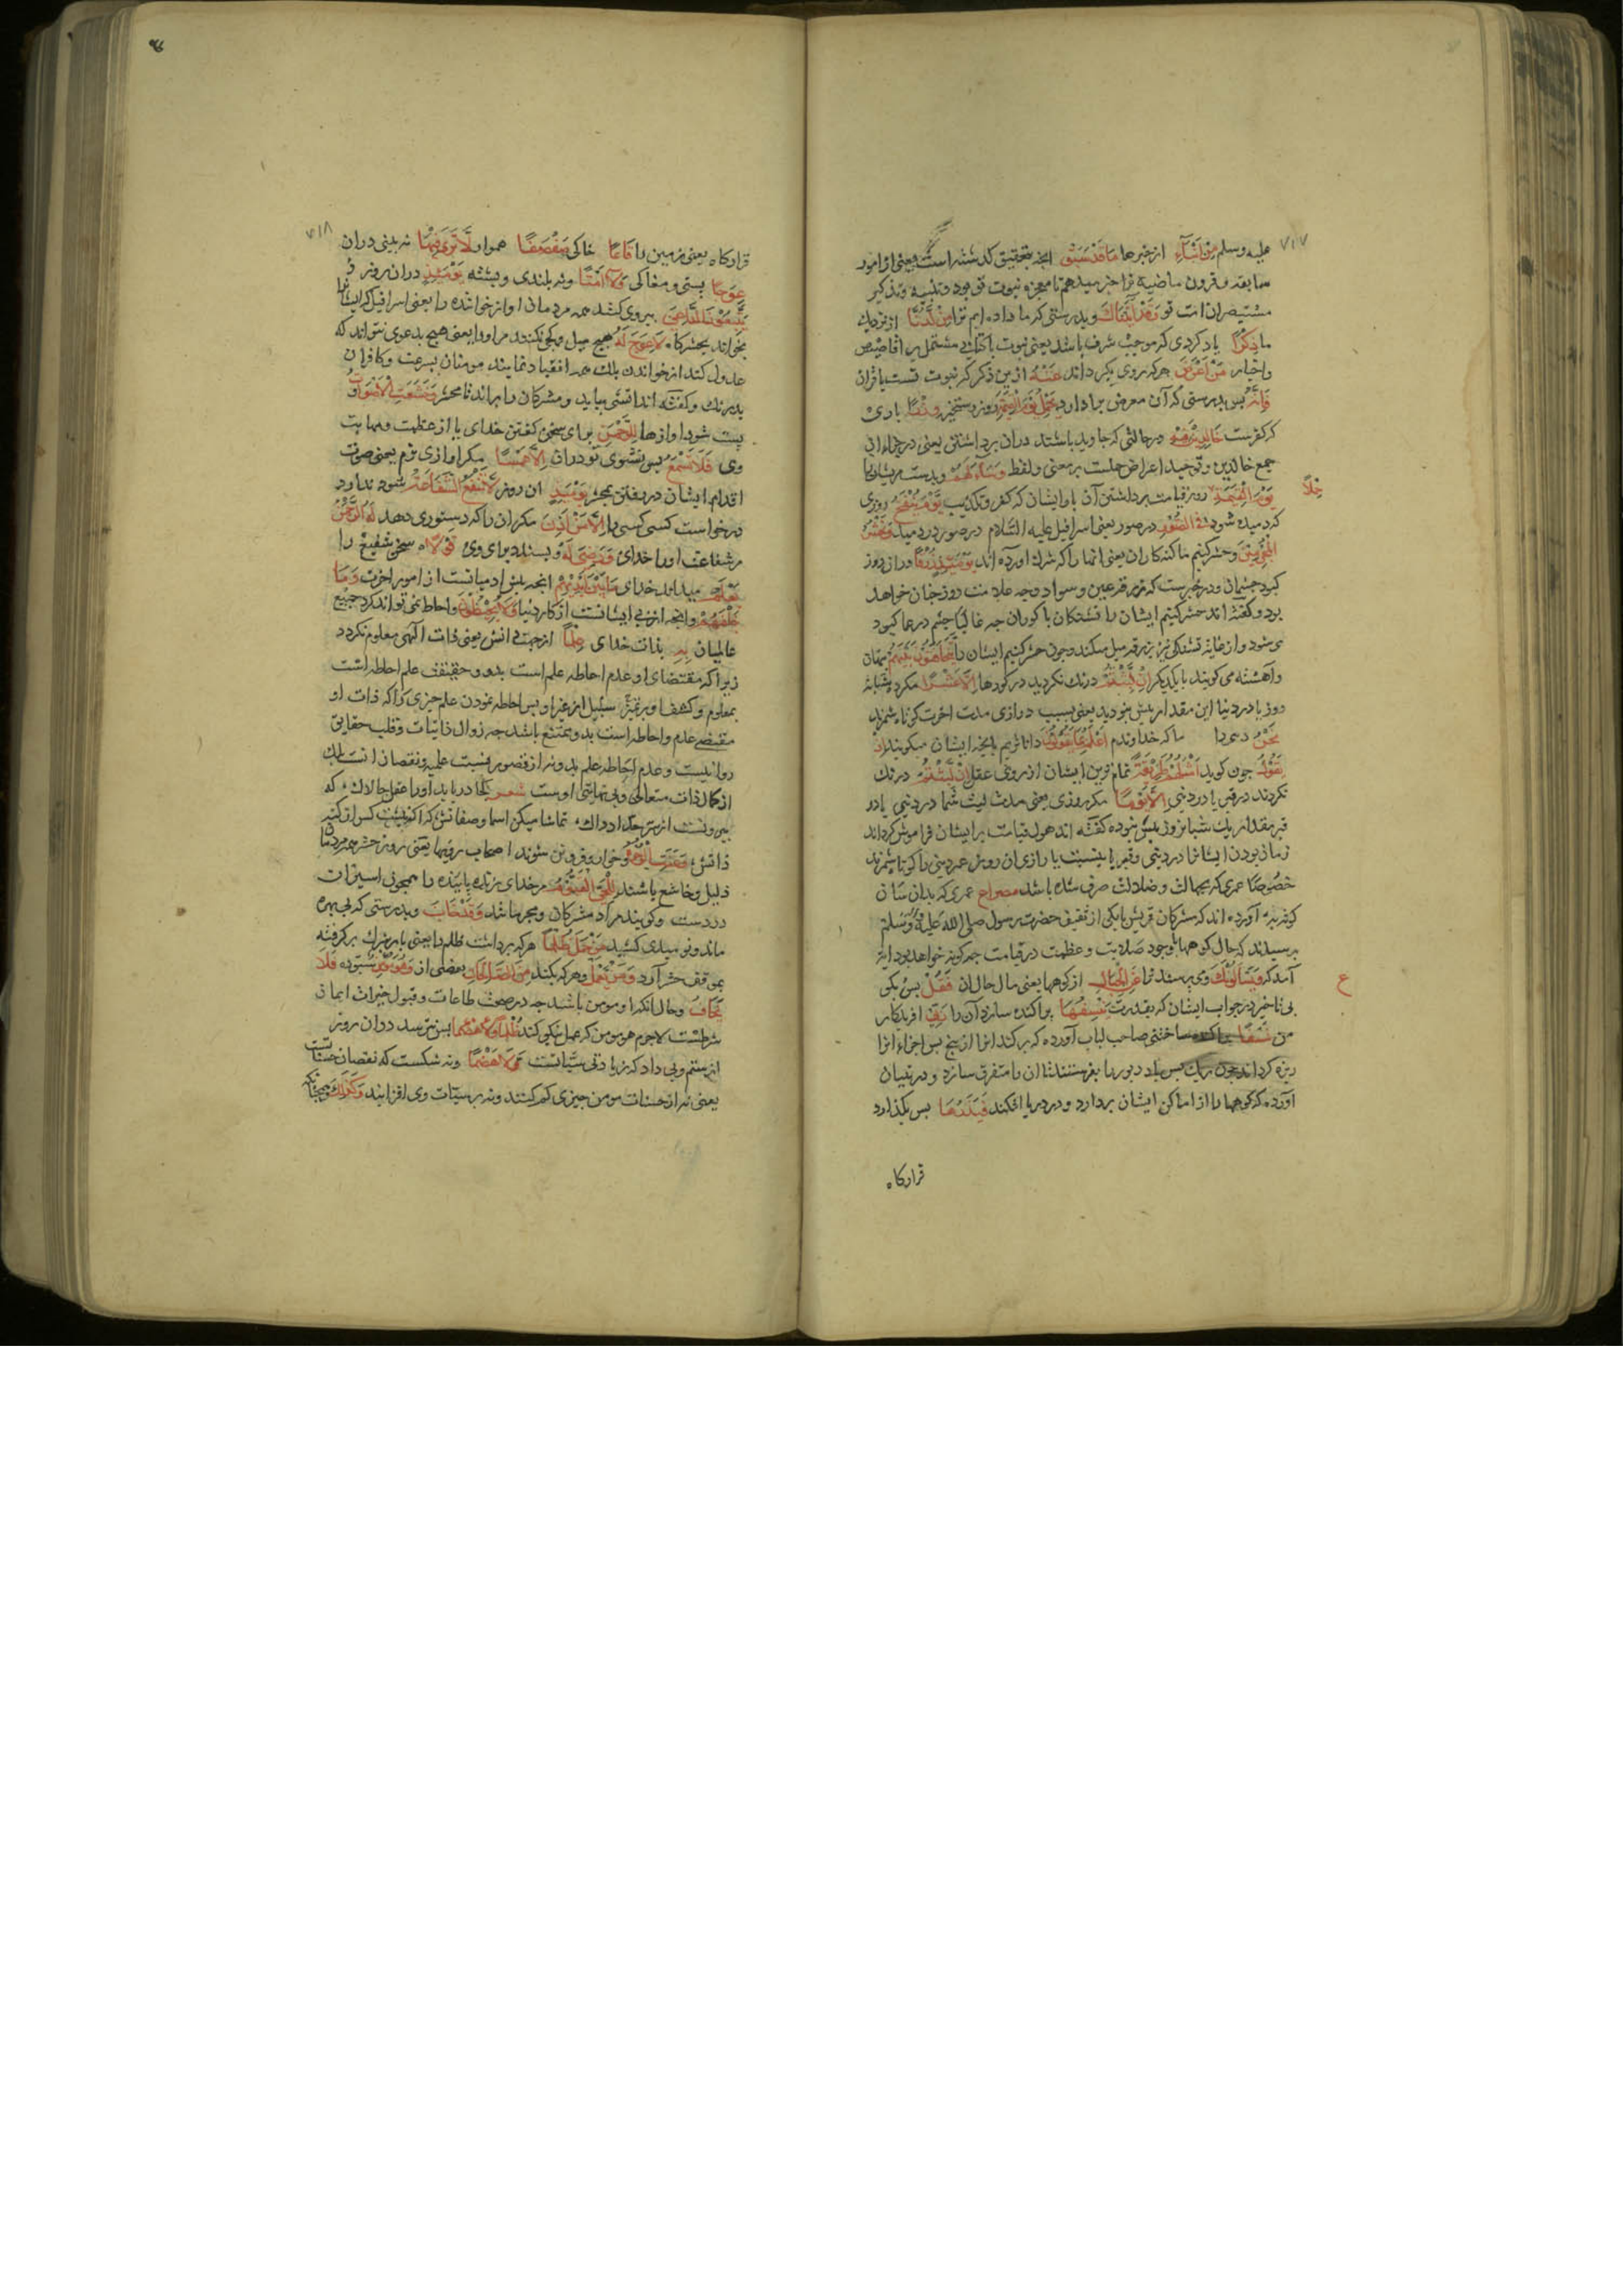 ۷۱۷
علیه وسلم مِنْ اَنْبَآءِ از خبرها مَا قَدْ سَبَقَ انچه بتحقیق کذشته است یعنی از امور
سابقه و قرون ماضیه ترا خبر میدهم تا معجزه نبوت تو بود و تنبیه و تذکیر
مستبصران امت تو وَقَدْ آتَيْنَاكَ و بدرستی که ما داده ایم ترا مِنْ لَّدُنَّا از نزدیک
ما ذِكْرًا یاد کردی که موجب شرف باشد یعنی نبوت با کتابی مشتمل بر اقاصیص
و اخبار مَنْ اَعْرَضَ هرکه روی بکرداند عَنْهُ ازین ذکر که نبوت تست یا قران
فَاِنَّهُ بس بدرستی که آن معرض بردارد يَحْمِلُ يَوْمَ الْقِيمَةِ روز رستخیز وِزْرًا باری
که کفرست خَالِدِينَ فِيهِ در حالتی که جاوید باشند دران برداشتن یعنی در جزاء ان
جمع خالدین و توحید اعراض حملست بر معنی و لفظ وَسَآءَ لَهُمْ و بدست مریشانرا
يَوْمَ الْقِيمَةِ روز قیامت برداشتن آن بار ایشان که کفر و تکذیب يَوْمَ يُنْفَخُ روزی
حِمْلًا
که دمیده شود فِى الصُّورِ در صور یعنی اسرافیل علیه السّلام در صور در دمد وَنَحْشُرُ
الْمُجْرِمِينَ و حشر کنیم ما کنه کاران یعنی انها را که شرك آورده اند يَوْمَئِذٍ زُرْقًا دران روز
کبود چشمان و در خبرست که زرقه عین و سواد وجه علامت دوزخیان خواهد
بود و کفته اند حشر کنیم ایشان را تشنکان یا کوران چه غالبا چشم در عما کبود
می شود و از غایة تشنکی نیز بزرقه میل میکند و چون حشر کنیم ایشان را يَتَخَافَتُونَ بَيْنَهُمْ پنهان
و آهسته می کویند با یکدیکر اِنْ لَّبِثْتُمْ درنك نکردید در کورها اِلَّا عَشْرًا مکر ده شبانه
روز یا در دنیا این مقدار بیش نبودید یعنی بسبب درازی مدت اخرت کوتاه شمرند
نَحْنُ دنیی را ما که خداوندیم اَعْلَمُ بِمَا يَقُولُونَ داناتریم بانچه ایشان میکویند اِذْ
يَقُولُ چون کوید اَمْثَلُهُمْ طَرِيقَةً تمام ترین ایشان از روی عقل اِنْ لَّبِثْتُمْ درنك
نکردند در قبر یا در دنیی اِلَّا يَوْمًا مکر روزی یعنی مدت لبث شما در دنیی یا در
قبر مقدار یك شبانروز بیش نبوده کفته اند هول قیامت بر ایشان فراموش کرداند
زمان بودن ایشانرا در دنیی و قبر یا بنسبت با درازی ان روز عمر دنیی را کوتاه شمرند
خصوصًا عمری که بجهالت و ضلالت صرف شده باشد مصراع عمری که بدان سان
کوفه آورده اند که مشرکان قریش یا یکی از ثقیف حضرت رسول صلی الله علیه وسلم
برسیدند که حال کوهها باوجود صلابت و عظمت در قیامت چه کونه خواهد بود ایة
آمد که وَيَسْئَلُونَكَ و می برسند ترا عَنِ الْجِبَالِ از کوهها یعنی مال حال ان فَقُلْ بس بکو
ع
بی تاخیر در جواب ایشان که بقدرت يَنْسِفُهَا براکنده سازد آن را رَبِّى افریدکار
من نَسْفًا ساختنی صاحب لباب آورده که برکند انرا از بیخ بس اجزاء انرا
ریزه کرداند چون ریك بس باد دبور را بفرستد تا ان را متفرق سازد و در تبیان
آورده که کوهها را از اماکن ایشان بردارد و در دریا افکند فَيَذَرُهَا بس بکذارد
قرارکاه
۷۱۸
قرارکاه یعنی زمین را قَاعًا خاکی صَفْصَفًا هموار لَّا تَرَى فِيهَا نه بینی دران
عِوَجًا بستی و مغاکی وَلَآ اَمْتًا ونه بلندی و بشته يَوْمَئِذٍ دران روز
يَّتَّبِعُونَ الدَّاعِىَ بیروی کنند همه مردمان اواز خواننده را یعنی اسرافیل که ایشانرا
بخواند بحشرکاه لَا عِوَجَ لَهُ هیچ میل و کجی نکنند مر او را یعنی هیچ بدعوی نتواند که
عدول کند از خواندن بلك همه انقیاد نمایند مومنان بسرعت و کافران
بدرنك و کفته اند اتشی بیاید و مشرکان را براند تا محشر وَخَشَعَتِ الْاَصْوَاتُ و
بست شود اوازها لِلرَّحْمَنِ برای سخن کفتن خدای یا از عظمت و مهابت
وی فَلَا تَسْمَعُ بس نشنوی تو دران اِلَّا هَمْسًا مکر اوازی نرم یعنی صوت
اقدام ایشان در رفتن بمحشر يَوْمَئِذٍ ان روز لَّا تَنْفَعُ الشَّفَاعَةُ سود ندارد
درخواست کسی کسی را اِلَّا مَنْ اَذِنَ مکر ان را که دستوری دهد لَهُ الرَّحْمَنُ
مر شفاعت او را خدای وَرَضِىَ لَهُ و بسندد برای وی قَوْلًا سخن شفیع را
يَعْلَمُ میداند خدای مَا بَيْنَ اَيْدِيهِمْ انچه بیش ادمیانست از امور اخرت وَمَا
خَلْفَهُمْ و انچه از بی ایشانست از کار دنیا وَلَا يُحِيطُونَ و احاطه نمی تواند کرد جمیع
عالمیان بِهِ بذات خدای عِلْمًا از جهت دانش یعنی ذات الهی معلوم نکردد
زیرا که مقتضای او عدم احاطه علم است بدو و حقیقت علم احاطه است
بمعلوم و کشف او بر تمییز سبیل از غیر او بس احاطه نمودن علم چیزی را که ذات او
مقتضی عدم و احاطه است بدو ممتنع باشد چه زوال ذاتیات و قلب حقایق
روا نیست و عدم احاطه علم بدو نه از قصور نسبت علمیه و نقصان انست بلك
از کمال ذات متعالی و بی نهایتی اوست شعر کجا دریابد او را عقل چالاك که
بیرونست از سرحد ادراك تماشا میکن اسما و صفاتش که اکه نیست کس از کنه
ذاتش وَعَنَتِ الْوُجُوهُ و خوار و فروتن شوند اصحاب رویها یعنی روز حشر همه مردمان
ذلیل و خاشع باشند لِلْحَىِّ الْقَيُّومِ مر خدای زنده پاینده را همچون اسیران
در دست و کویند مراد مشرکان و مجرمانند وَقَدْ خَابَ و بدرستی که بی بهره
ماند و نومیدی کشید مَنْ حَمَلَ ظُلْمًا هرکه برداشت ظلم را یعنی بار شرك برکرفته
بموقف حشر آرد وَمَنْ يَعْمَلْ و هرکه بکند مِنَ الصَّالِحَاتِ بعضی از ستوده وَهُوَ مُؤْمِنٌ فَلَا
يَخَافُ و حال انکه او مومن باشد چه در صحت طاعات و قبول خیرات ایمان
شرطست لاجرم هر مومن که عمل نیکو کند ظُلْمًا وَلَا هَضْمًا بس نترسد دران روز
از ستم و بی داد که زیادتی سیآتست وَّلَا هَضْمًا ونه شکست که نقصان حسناتست
یعنی نه از حسنات مومن چیزی کم کنند ونه بر سیئات وی افزایند وَكَذَلِكَ و همچنانکه